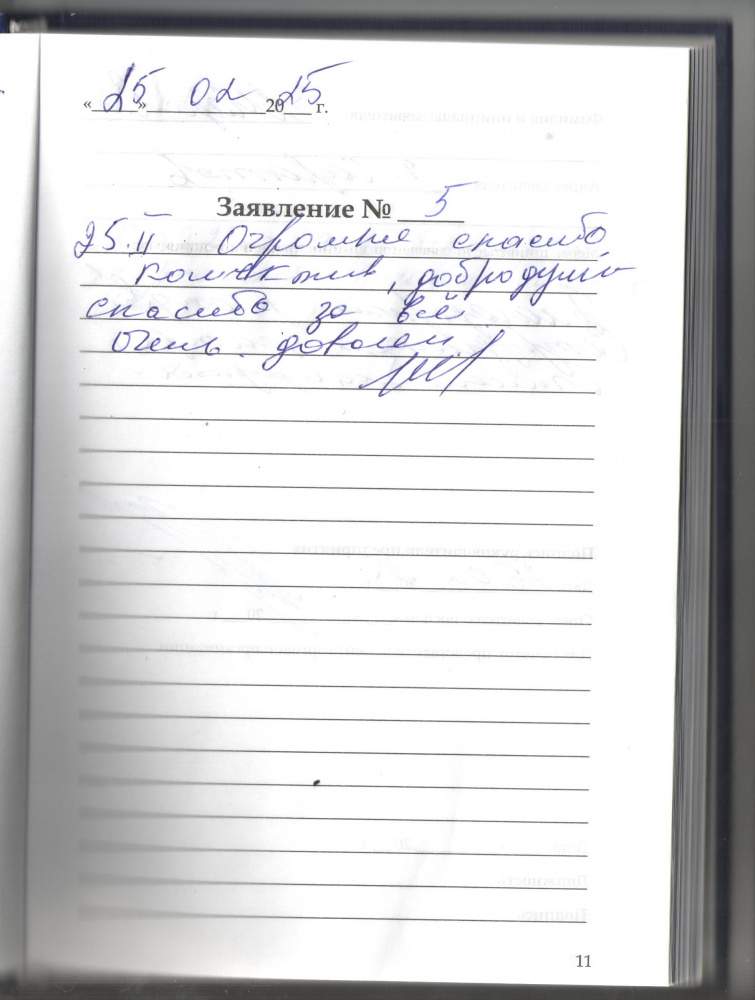 « 25 » 02 2025 г.
Заявление № 5
25.II Огромне спасибо
колектив, добродуший
спасибо за всё
Очень доволен
11